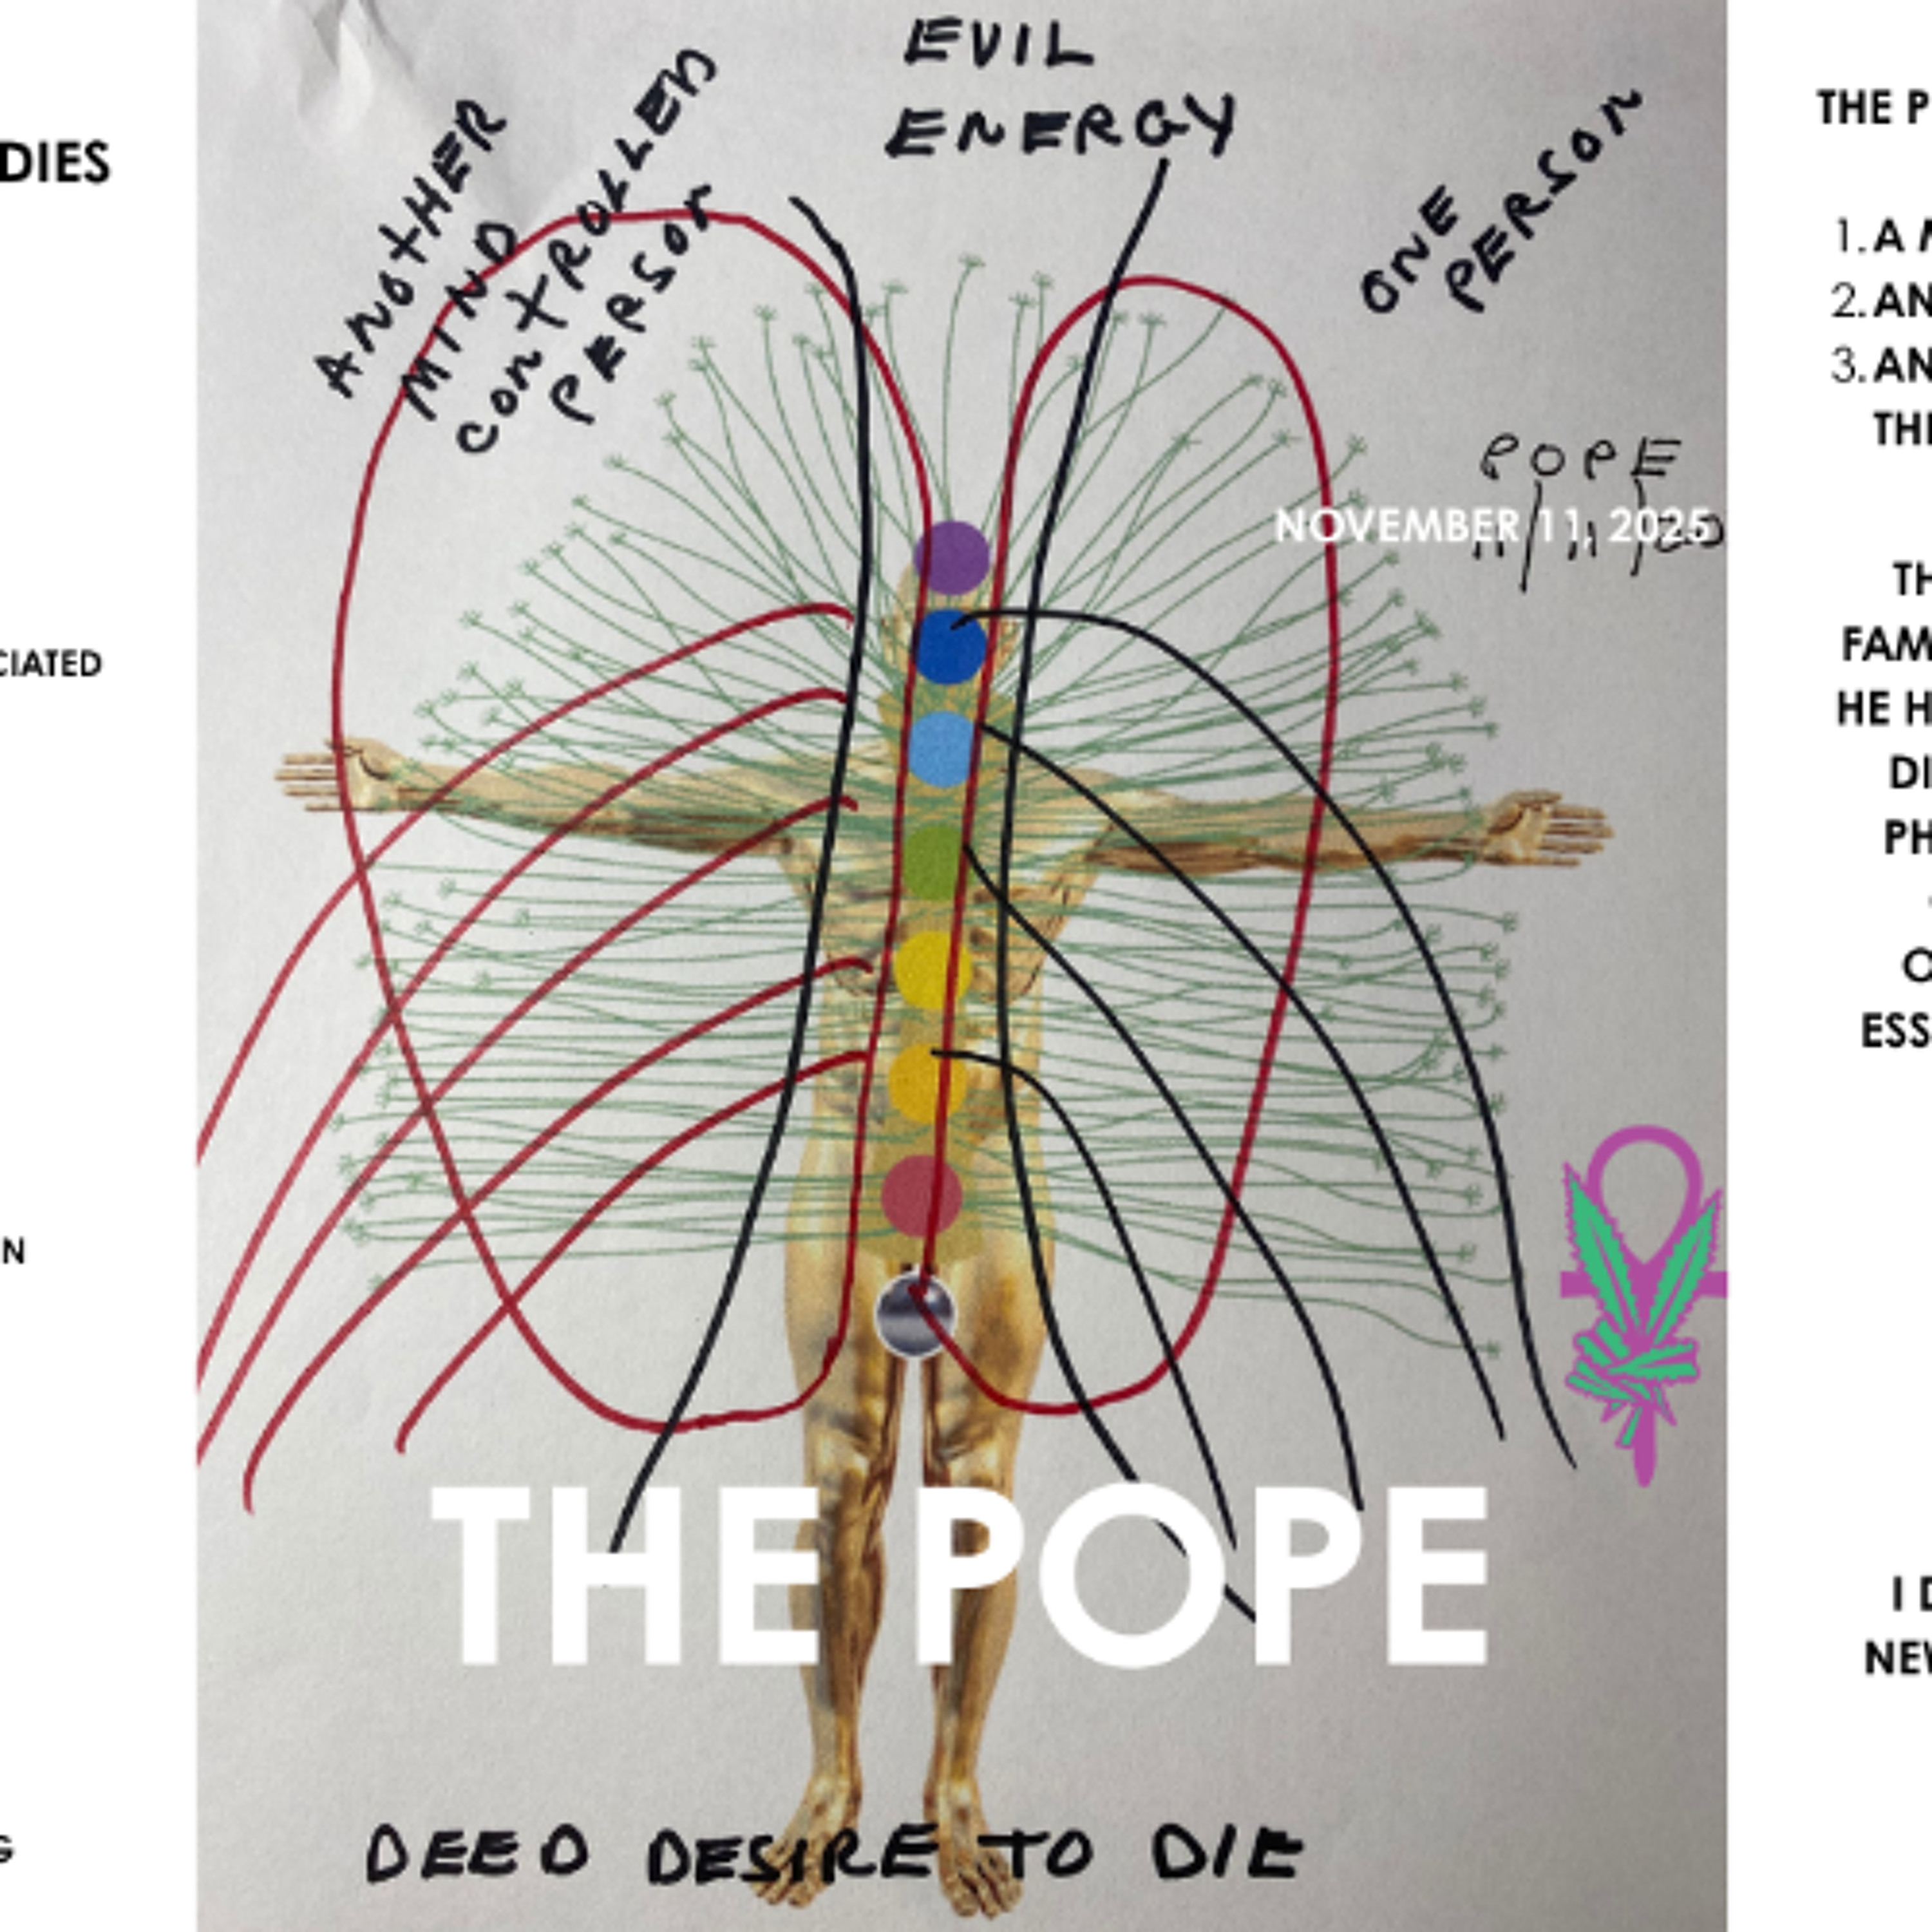 DIES
CIATED
N
G
EVIL
ENERGY
ANOTHER
MIND
CONTROLLED
PERSON
ONE
PERSON
POPE
NOVEMBER 11, 2025
THE POPE
DEED DESIRE TO DIE
THE P
1. A
2. AN
3. AN
THE
TH
FAM
HE H
DI
PH
O
ESS
I D
NEW